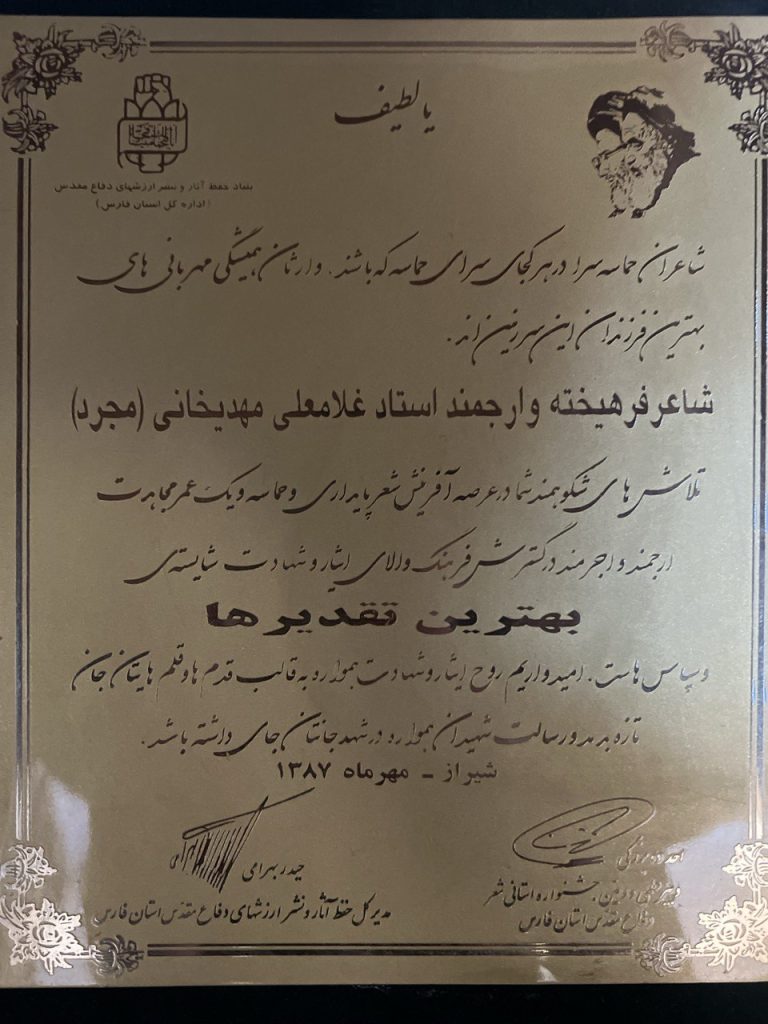 یا لطیف
بنیاد حفظ آثار و نشر ارزشهای دفاع مقدس
(اداره کل استان فارس)
شاعران حماسه سرا در هر کجای سرای حماسه که باشند، وارثان همیشگی مهربانی های
بهترین فرزندان این سرزمین اند.
شاعر فرهیخته و ارجمند استاد غلامعلی مهدیخانی (مجرد)
تلاش های شکوهمند شما در عرصه آفرینش شعر پایداری و حماسه و یک عمر مجاهدت
ارجمند و اجرمند در گسترش فرهنگ والای ایثار و شهادت شایسته ی
بهترین تقدیر ها
و سپاس هاست. امیدواریم روح ایثار و شهادت همواره به قالب قدم ها و قلم هایتان جان
تازه بدمد و رسالت شهیدان همواره در شهد جانتان جای داشته باشد.
شیراز - مهرماه ۱۳۸۷
حیدر بهرامی
مدیر کل حفظ آثار و نشر ارزشهای دفاع مقدس استان فارس
جشنواره استانی شعر
دفاع مقدس استان فارس